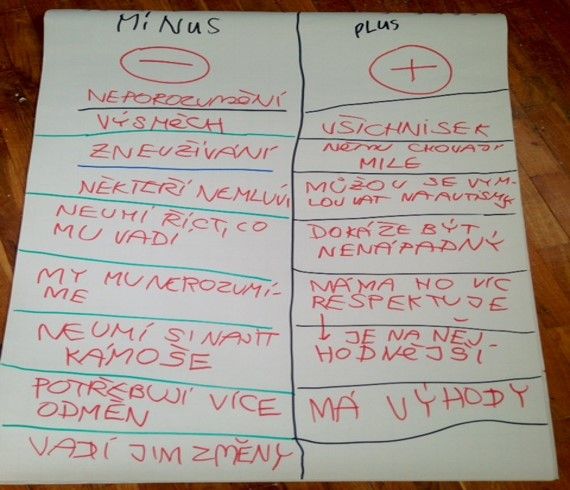 MÍNUS
NEPOROZUMĚNÍ
VÝSMĚCH
ZNEUŽÍVANÍ
NĚKTEŘÍ NEMLUVÍ
NEUMÍ ŘÍCT, CO
MU VADÍ
MY MU NEROZUMÍ-
ME
NEUMÍ SI NAJÍT
KÁMOŠE
POTŘEBUJÍ VÍCE
ODMĚN
VADÍ JIM ZMĚNY
PLUS
VŠICHNI SE K
NĚMU CHOVAJÍ
MILE
MŮŽOU SE VYM-
LOUVAT NA AUTISMUS
DOKÁŽE BÝT
NENÁPADNÝ
MÁMA HO VÍC
RESPEKTUJE
↓ JE NA NĚJ
HODNĚJŠÍ
MÁ VÝHODY